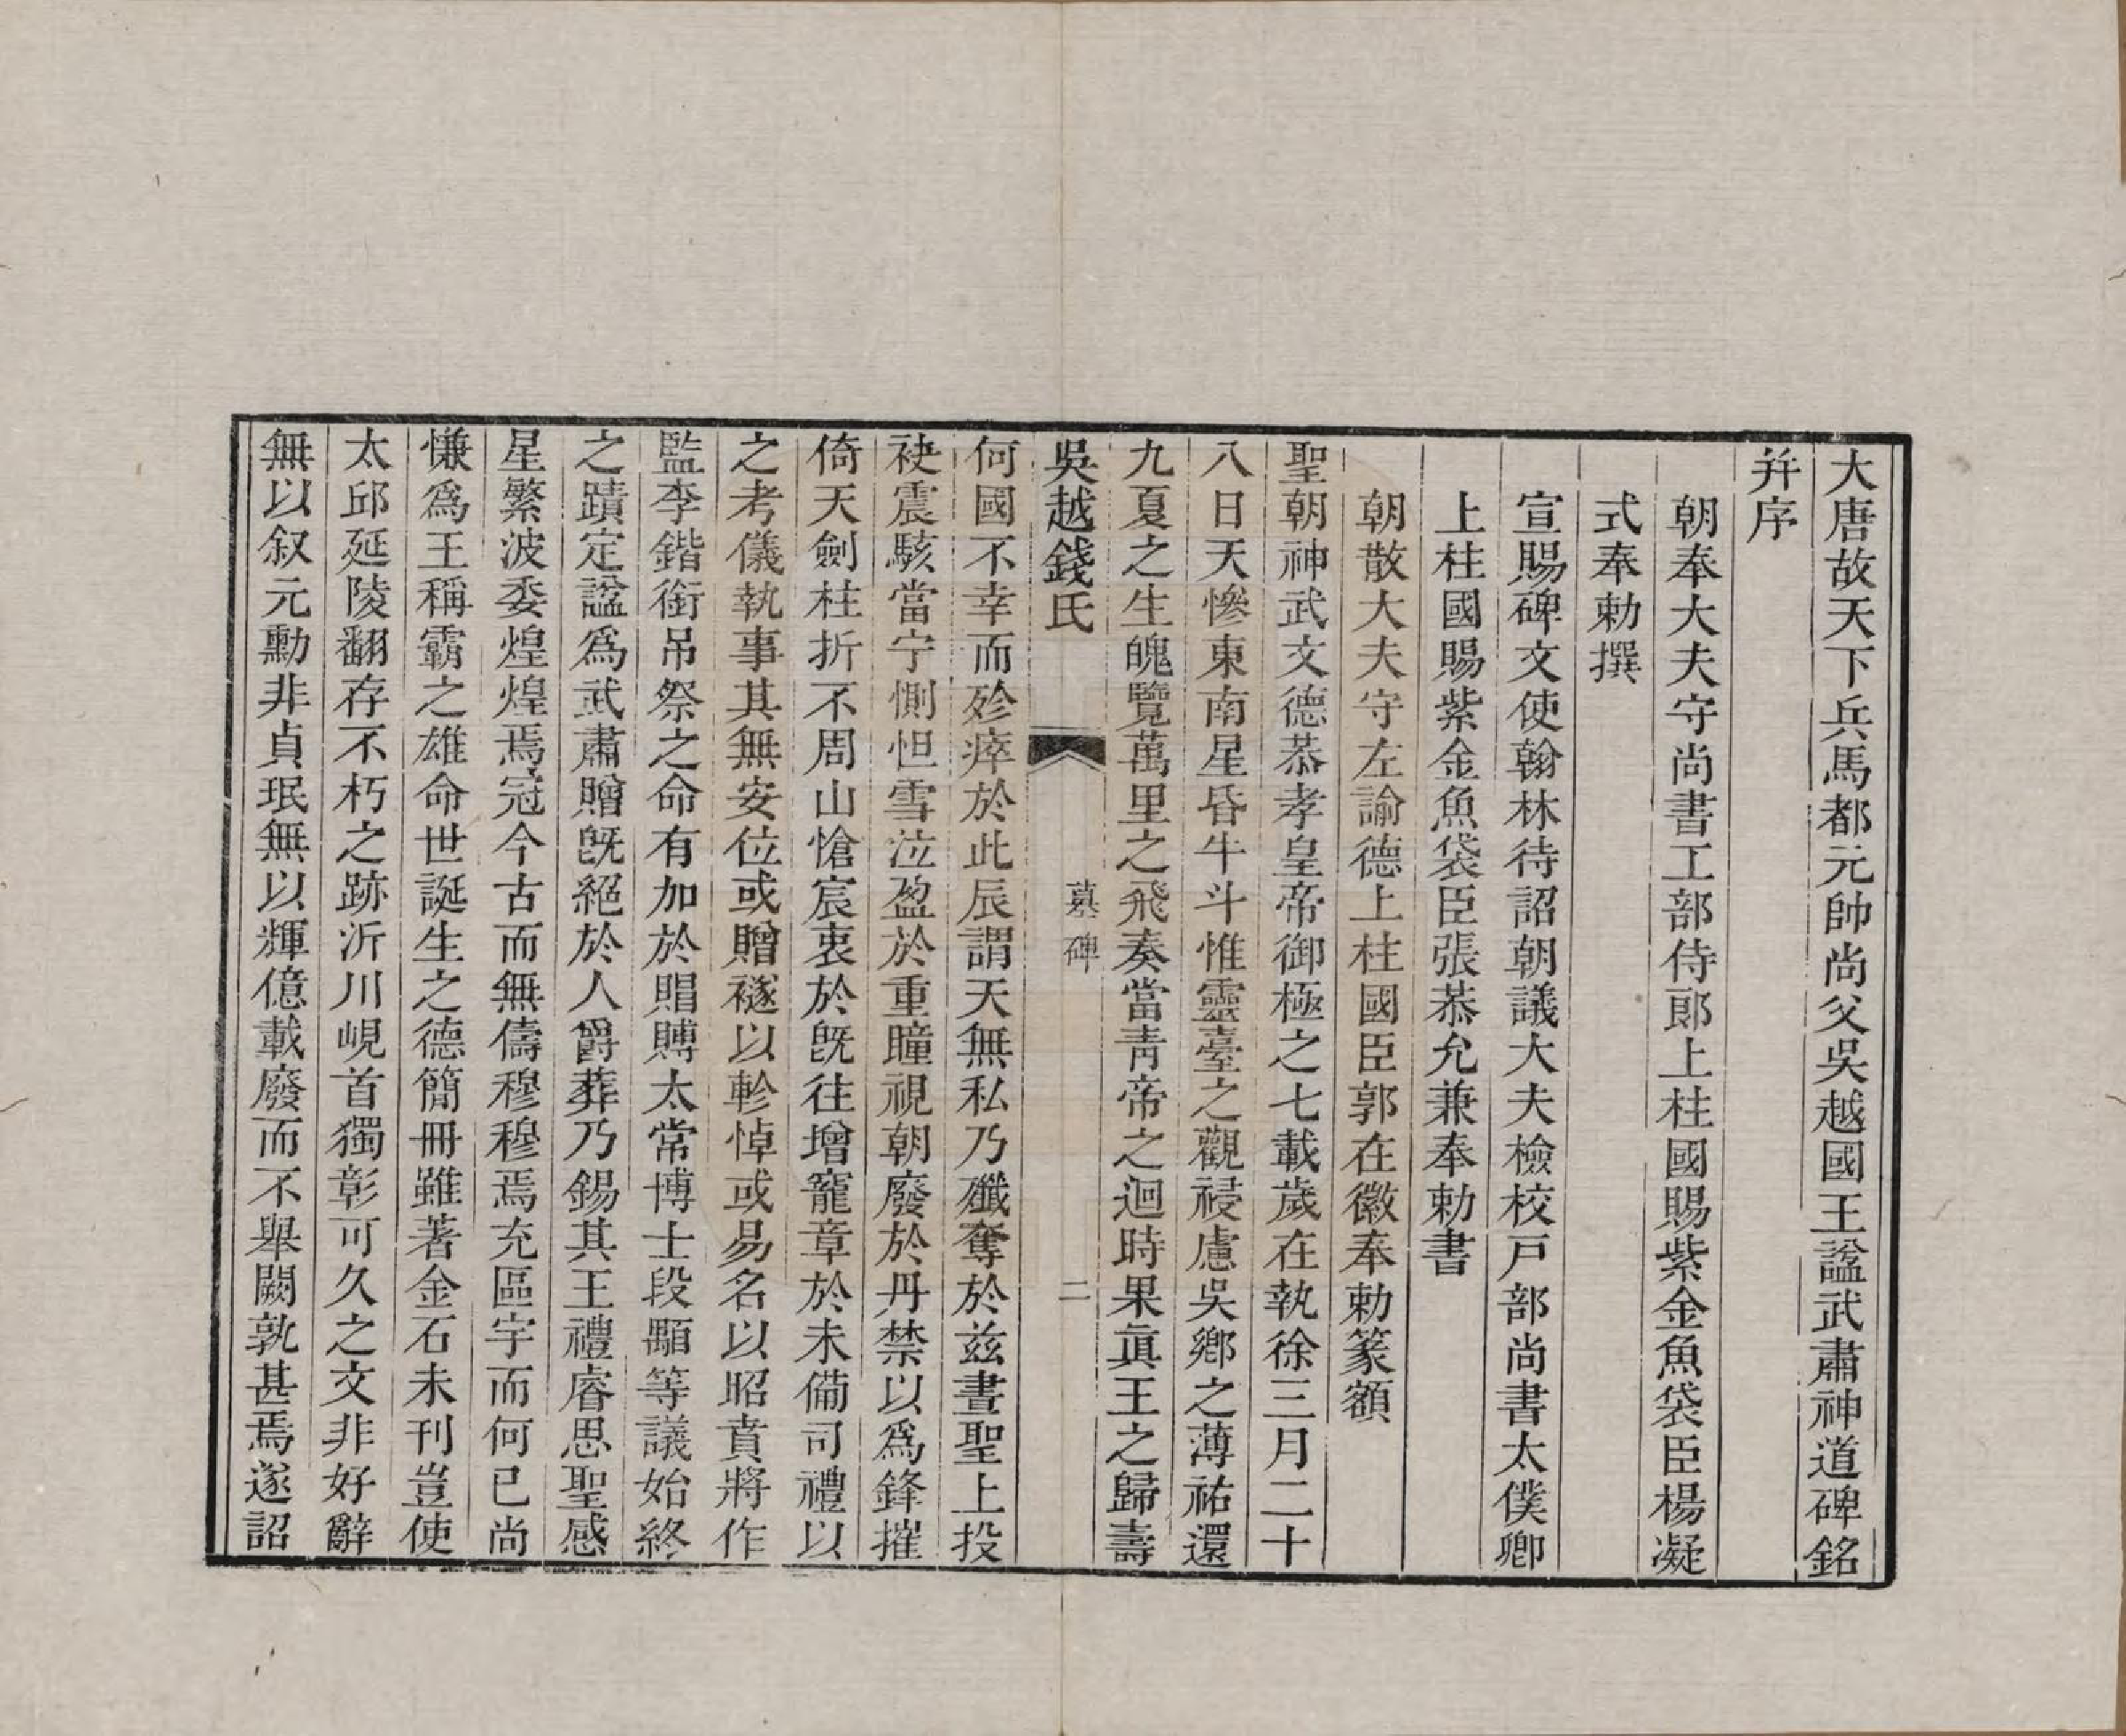 大唐故天下兵馬都元帥尚父吳越國王諡武肅神道碑銘
并序
朝奉大夫守尚書工部侍郎上柱國賜紫金魚袋臣楊凝
式奉勅撰
宣賜碑文使翰林待詔朝議大夫檢校戸部尚書太僕卿
上柱國賜紫金魚袋臣張恭允兼奉勅書
朝散大夫守左諭德上柱國臣郭在徽奉勅篆額
聖朝神武文德恭孝皇帝御極之七載歲在執徐三月二十
八日天慘東南星昏牛斗惟靈臺之觀祲慮吳鄉之薄祐還
九夏之生魄覽萬里之飛奏當靑帝之迴時果眞王之歸壽
吳越錢氏
墓碑
二
何國不幸而殄瘁於此辰謂天無私乃殲奪於茲晝聖上投
袂震駭當宁惻怛雪泣盈於重瞳視朝廢於丹禁以爲鋒摧
倚天劍柱折不周山愴宸衷於旣往增寵章於未備司禮以
之考儀執事其無安位或贈襚以軫悼或易名以昭賁將作
監李鍇銜吊祭之命有加於賵賻太常博士段顒等議始終
之蹟定諡爲武肅贈旣絕於人爵葬乃錫其王禮睿思聖感
星繁波委煌煌焉冠今古而無儔穆穆焉充區宇而何已尚
慊爲王稱霸之雄命世誕生之德簡冊雖著金石未刊豈使
太邱延陵翻存不朽之跡沂川峴首獨彰可久之文非好辭
無以叙元勳非貞珉無以輝億載廢而不舉闕孰甚焉遂詔